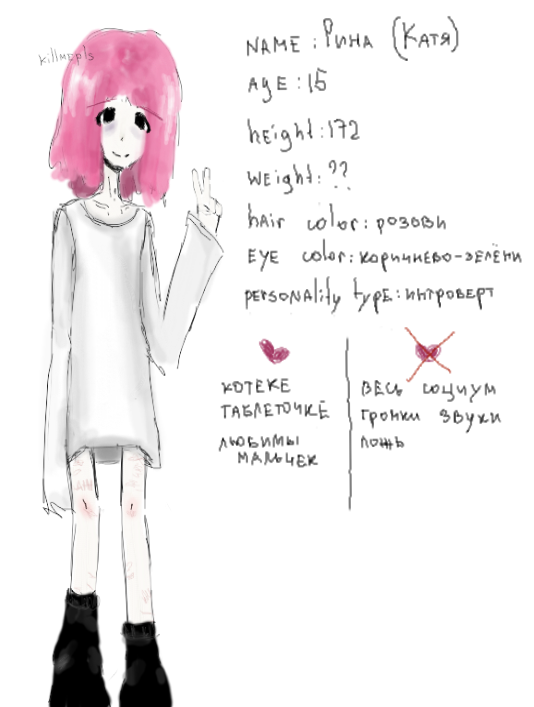 killmepls
NAME: Рина (Катя)
Age: 15
height: 172
weight: ??
hair color: розови
EYE color: коричнево-зелёни
personality type: интроверт
котеке
таблеточке
любимы
мальчек
весь социум
громки звуки
ложь